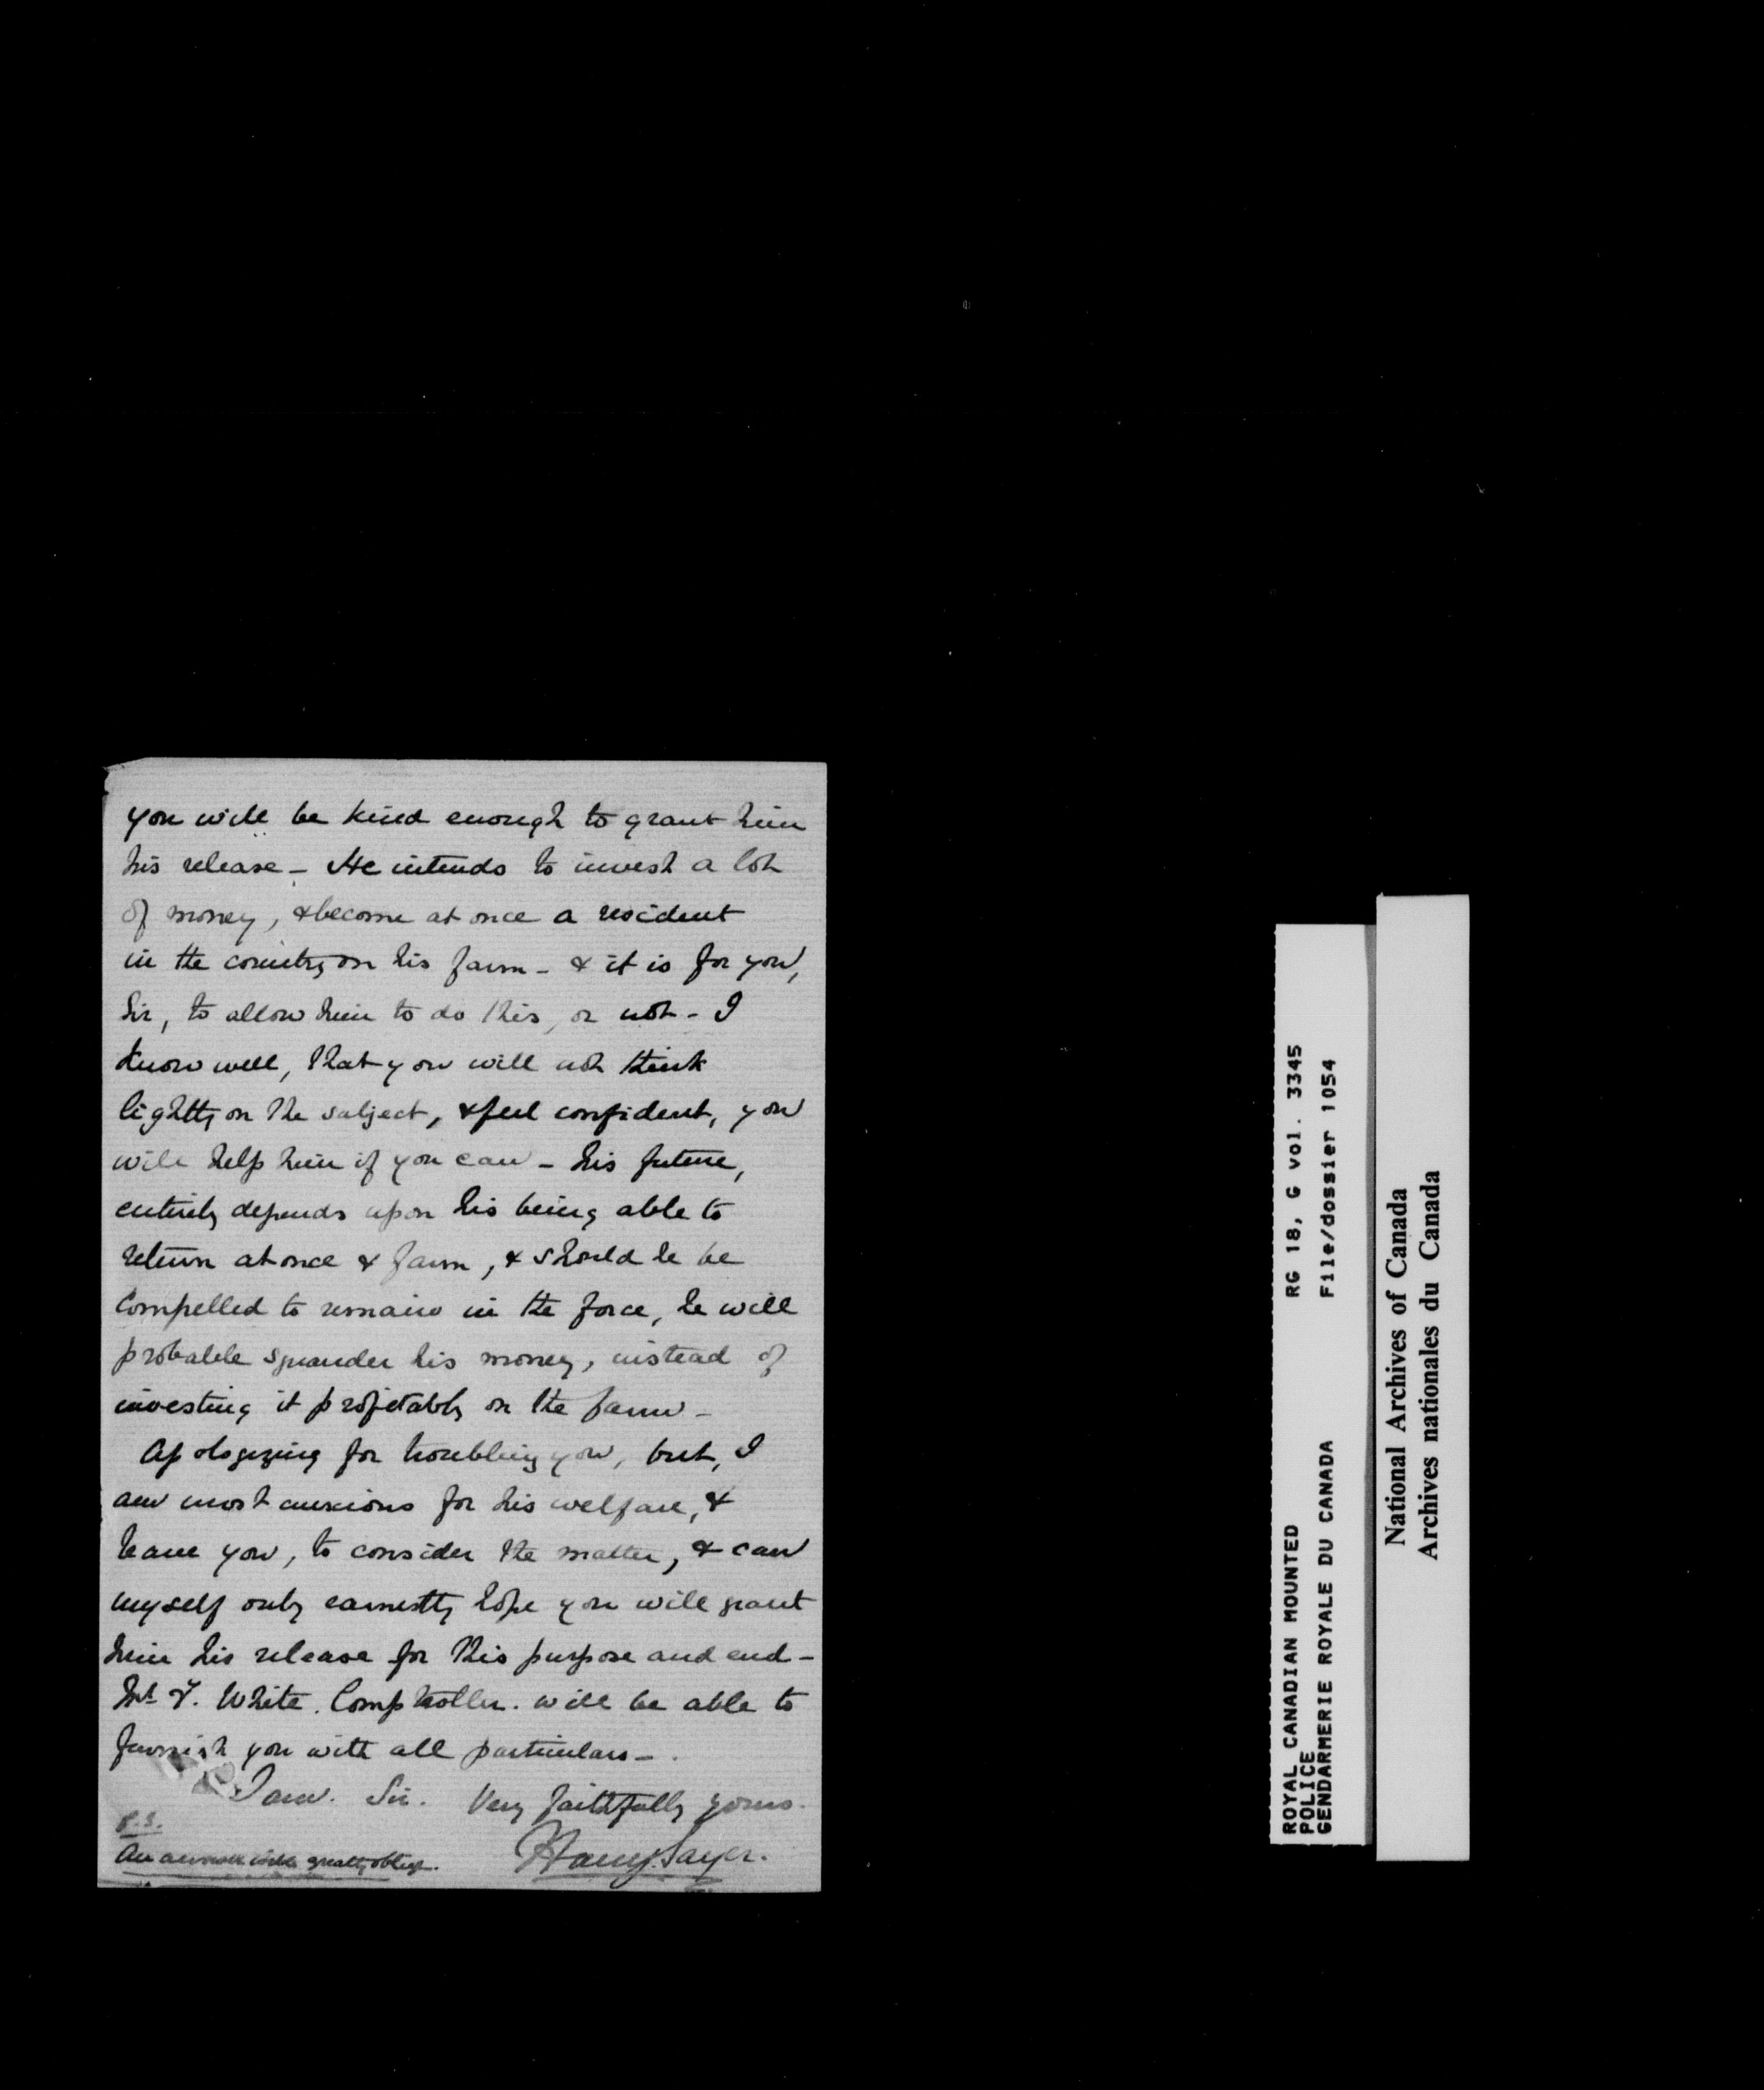 you will be kind enough to grant him
his release - He intends to invest a lot
of money, & become at once a resident
in the country on his farm - & it is for you,
Sir, to allow him to do this, or not - I
know well, that you will not think
lightly on the subject, & feel confident, you
will help him if you can - his future,
entirely depends upon his being able to
return at once & farm, & should he be
compelled to remain in the force, he will
probable squander his money, instead of
investing it profitably on the farm -
Apologizing for troubling you, but, I
am most anxious for his welfare, &
leave you, to consider the matter, & can
myself only earnestly hope you will grant
him his release for this purpose and end -
Mr. F. White. Comptroller. will be able to
furnish you with all particulars -
I am. Sir. Very faithfully yours.
P.S.
An answer will greatly oblige.
Harry Sayer.
ROYAL CANADIAN MOUNTED POLICE
RG 18, G vol. 3345
GENDARMERIE ROYALE DU CANADA
File/dossier 1054
National Archives of Canada
Archives nationales du Canada